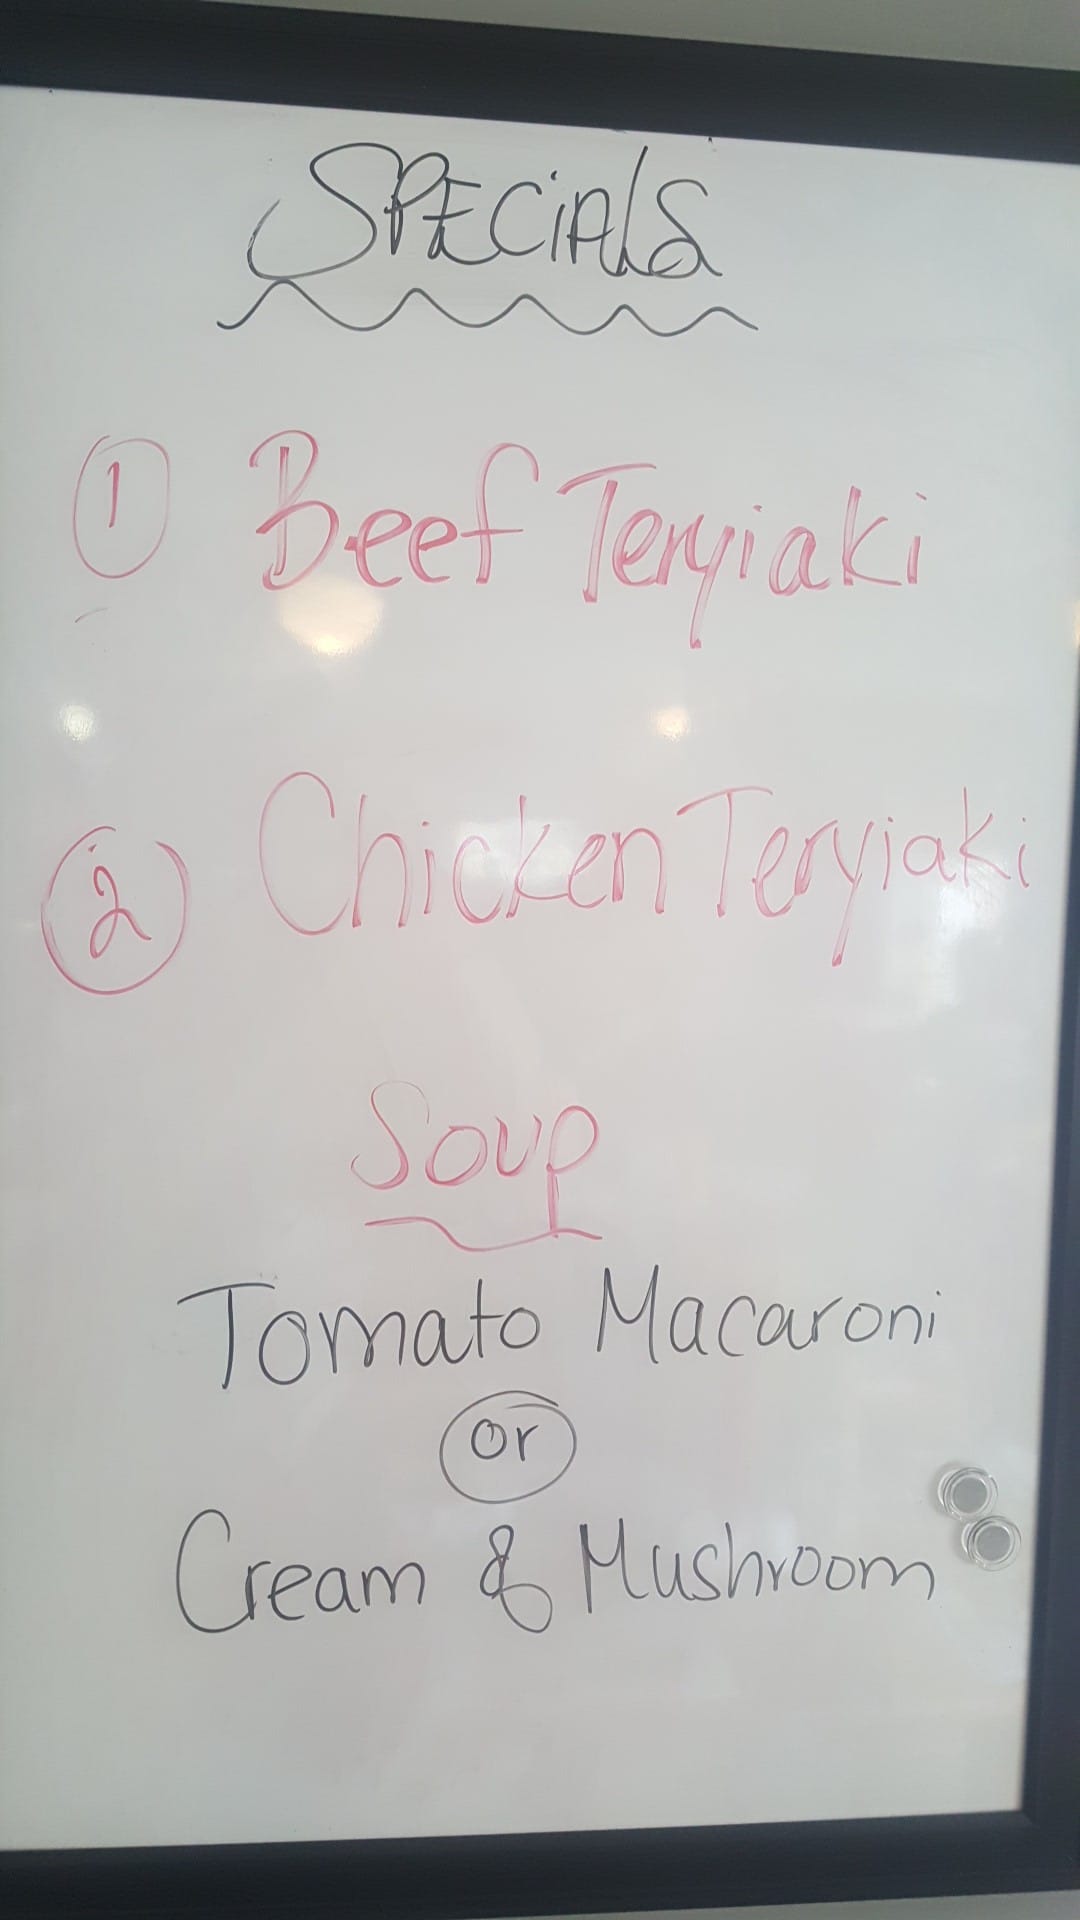 SPECiAls
1 Beef Teryiaki
2 Chicken Teryiaki
Soup
Tomato Macaroni
or
Cream & Mushroom